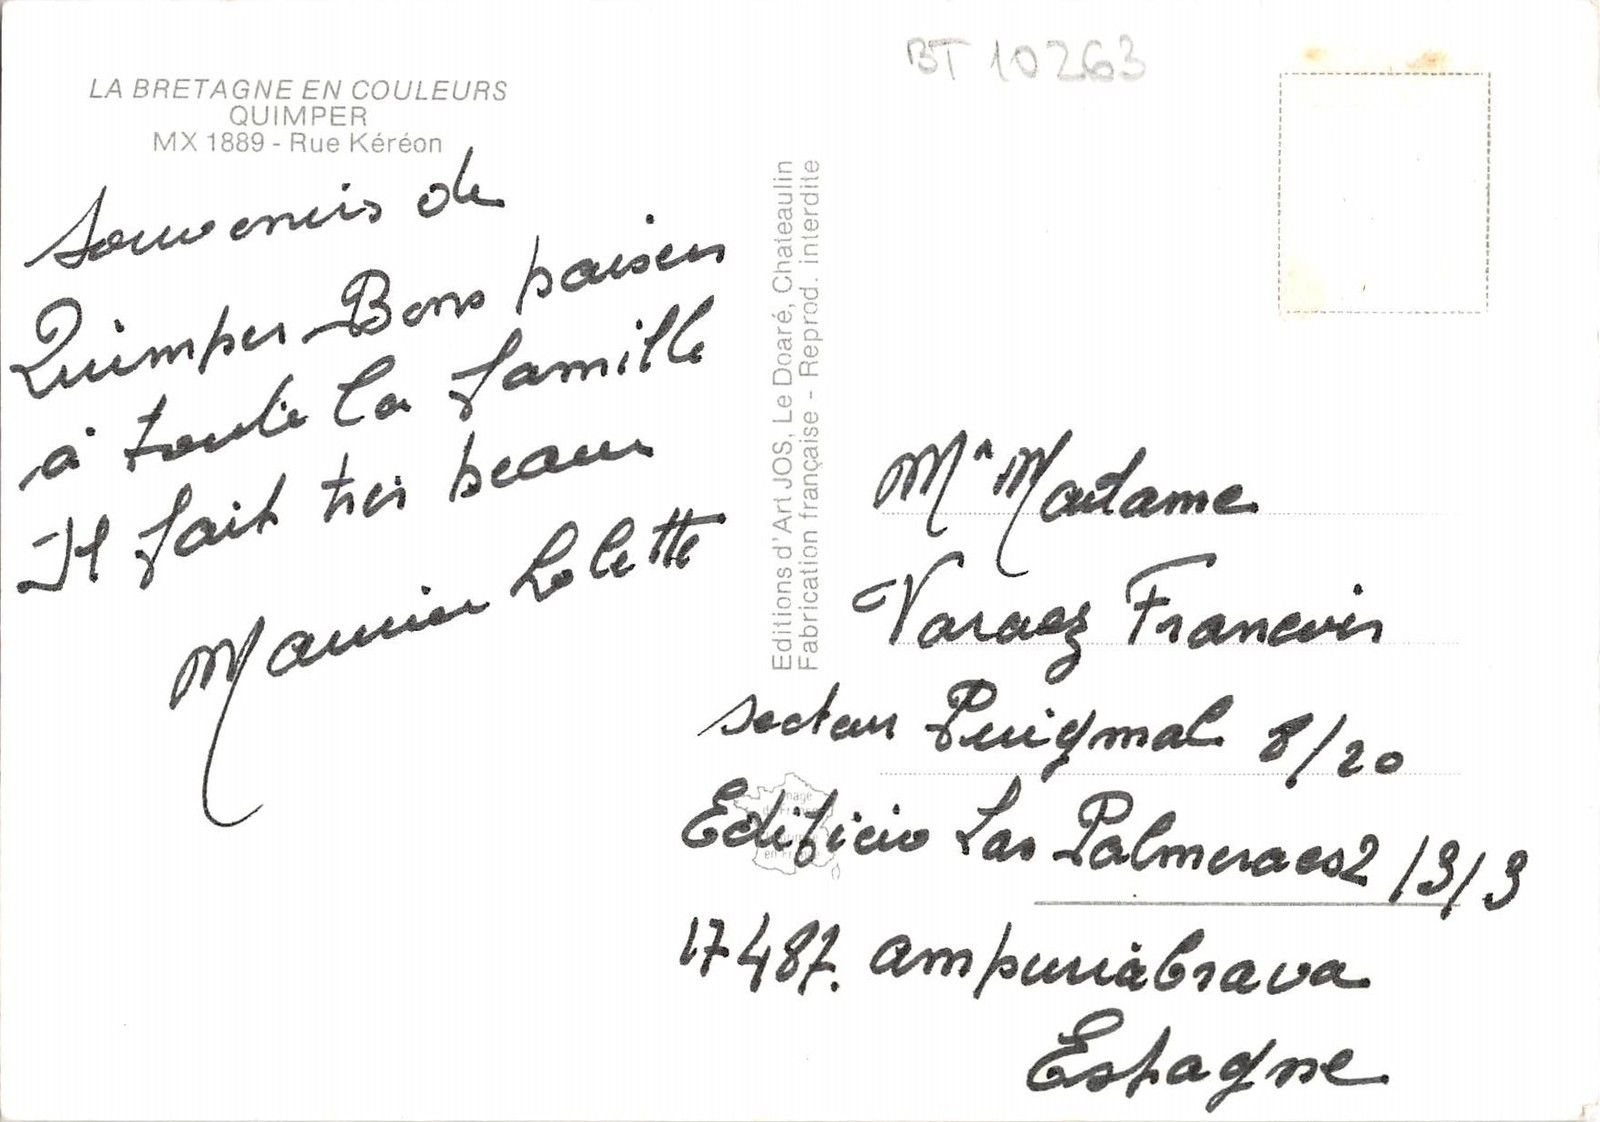 LA BRETAGNE EN COULEURS
QUIMPER
MX 1889 - Rue Kéréon
Souvenirs de
Quimper - Bons baisers
à toute la famille
Il fait très beau
Lolette
BT 10263
Editions d'Art JOS, Le Doaré, Chateaulin
Fabrication française - Reprod. interdite
Madame
Varaez
secteur Puigmal 8/20
Edificio Las Palmeraes 2 /3/3
17487. ampuriabrava
Espagne